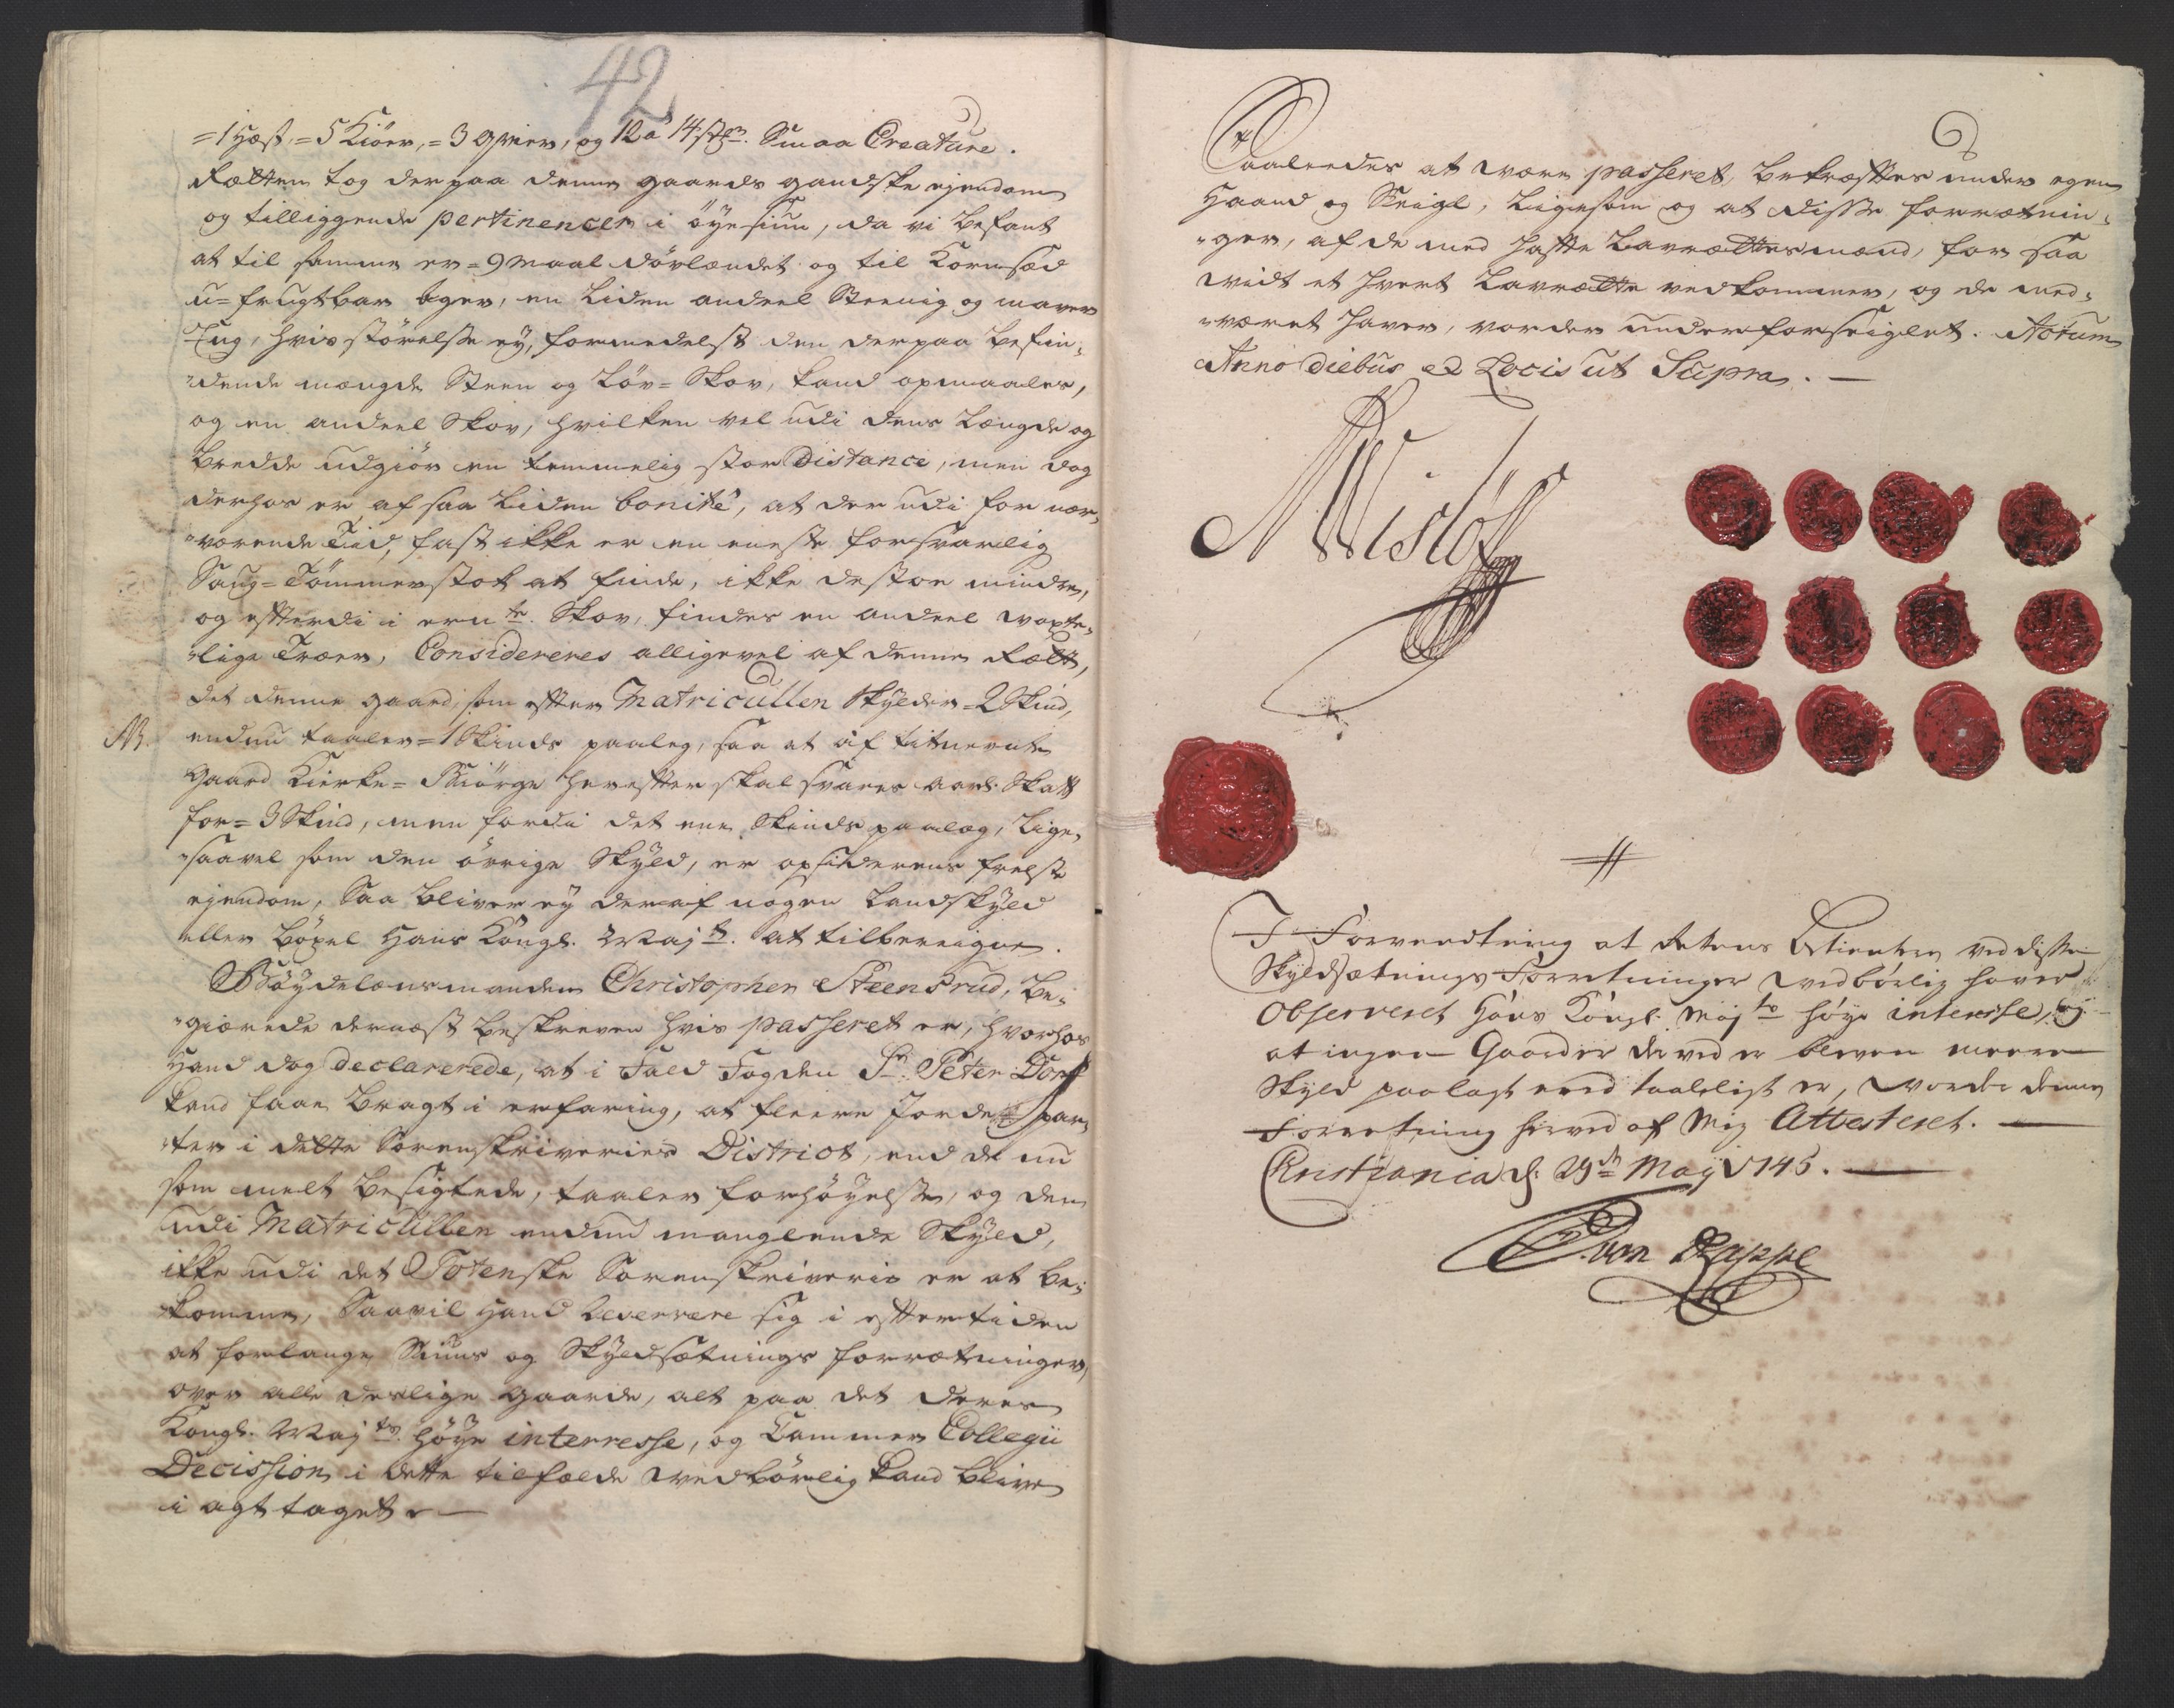 42
=1 Hæst, =5 Kiöer, =3 qvier, og 12 a 14 stk. Smaa Creature.
Rætten tog derpaa denne gaards gandske ejendom
og tilliggende pertinencer i öyesiun, da vi befant
at til samme er =9 Maal dörlændet og til Kornsæd
u=frugtbar ager, en liden andeel Steenig og maver
Eng, hvis störelse ej, formedelst den derpaa befin-
"dende mængde Steen og Löv=Skov, kand opmaales,
og en andeel Skov, hvilken vel udi dens Længde og
bredde udgiör en temmelig stor Distance, men dog
derhos er af saa Liden bonité, at der udi for nær-
"værende Tid, fast ikke er en eneste forsvarlig
Saug=Tömmerstok at finde, ikke desto mindre,
og efterdi i ern.te Skov, findes en andeel voxte-
"lige Træer, Considereres alligevel af denne Rætt,
det denne gaard, som efter Matricullen Skylder =2 Skind,
NB. endnu taaler =1 Skinds paaleg, saa at af titnefnte
Gaard Kierke=Skiörge herefter skal svares aarl. Skatt
for =3 Skind, men fordi det ene Skinds paalæg, lige-
"saavel som den övrige Skyld, er opsidderens frelse
ejendom, Saa bliver ej deraf nogen Landskyld
eller böxel Hans Kongl. Maj.t at tilbereigne.
Böydelensmanden Christopher Steensrud, be-
"giærede dernæst beskreven hvis passeret er, hvorhos
Hand dog declarerede, at i Fald Fogden Sr. Peter Dorf
kand faae bragt i erfaring, at fleere Jordepar-
"ter i dette Sorenskriveries District, end de nu
som melt besigtede, taaler forhöyelse, og den
udi Matricullen endnu manglende Skyld,
ikke udi det Totenske Sorenskriverie er at be-
"komme, Saa vil Hand reservere sig i eftertiden
at forlange Siuns og Skyldsætnings forrætninger,
over alle deslige gaarde, alt paa det deres
Kongl. Maj.ts höye interresse, og Cammer Collegii
Decission i dette tilfælde vedbörlig kand blive
i agt taget.
Saaledes at være passeret, bekræftes under egen
Haand og Seigl, Ligesom og at disse forrætnin-
"ger, af de med hafte Lavrættesmænd, for saa
vidt et hvert Lavrætte vedkommer, og de med-
"været haver, vorder underforseiglet. Actum
Anno diebus et Locis ut Supra.
Wislöff
I Forvendtning at Retens Betienter ved disse
Skyldsætnings Forretninger vedbörlig haver
Observeret Hans Kongl. Maj.ts höye interesse, og
at ingen Gaarder derved er bleven meere
Skyld paalagt end taaleligt er, vorder denne
Forretning herved af Mig Attesteret.
Christiania d. 29de Maij 1745.